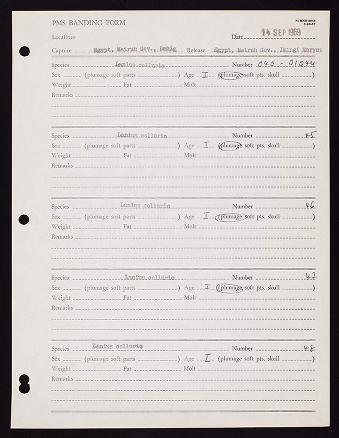 PMS BANDING FORM
Localities
Date 14 SEP 1969
Capture Egypt, Matruh Gov., Release Egypt, Matruh Gov.,
Species Lanius collurio Number 040 - 01844
Sex (plumage soft parts ) Age I (plumage soft pts. skull )
Weight Fat Molt
Remarks
Species Lanius collurio Number 45
Sex (plumage soft parts ) Age I (plumage soft pts. skull )
Weight Fat Molt
Remarks
Species Lanius collurio Number 46
Sex (plumage soft parts ) Age I (plumage soft pts. skull )
Weight Fat Molt
Remarks
Species Lanius collurio Number 47
Sex (plumage soft parts ) Age I (plumage soft pts. skull )
Weight Fat Molt
Remarks
Species Lanius collurio Number 48
Sex (plumage soft parts ) Age I (plumage soft pts. skull )
Weight Fat Molt
Remarks